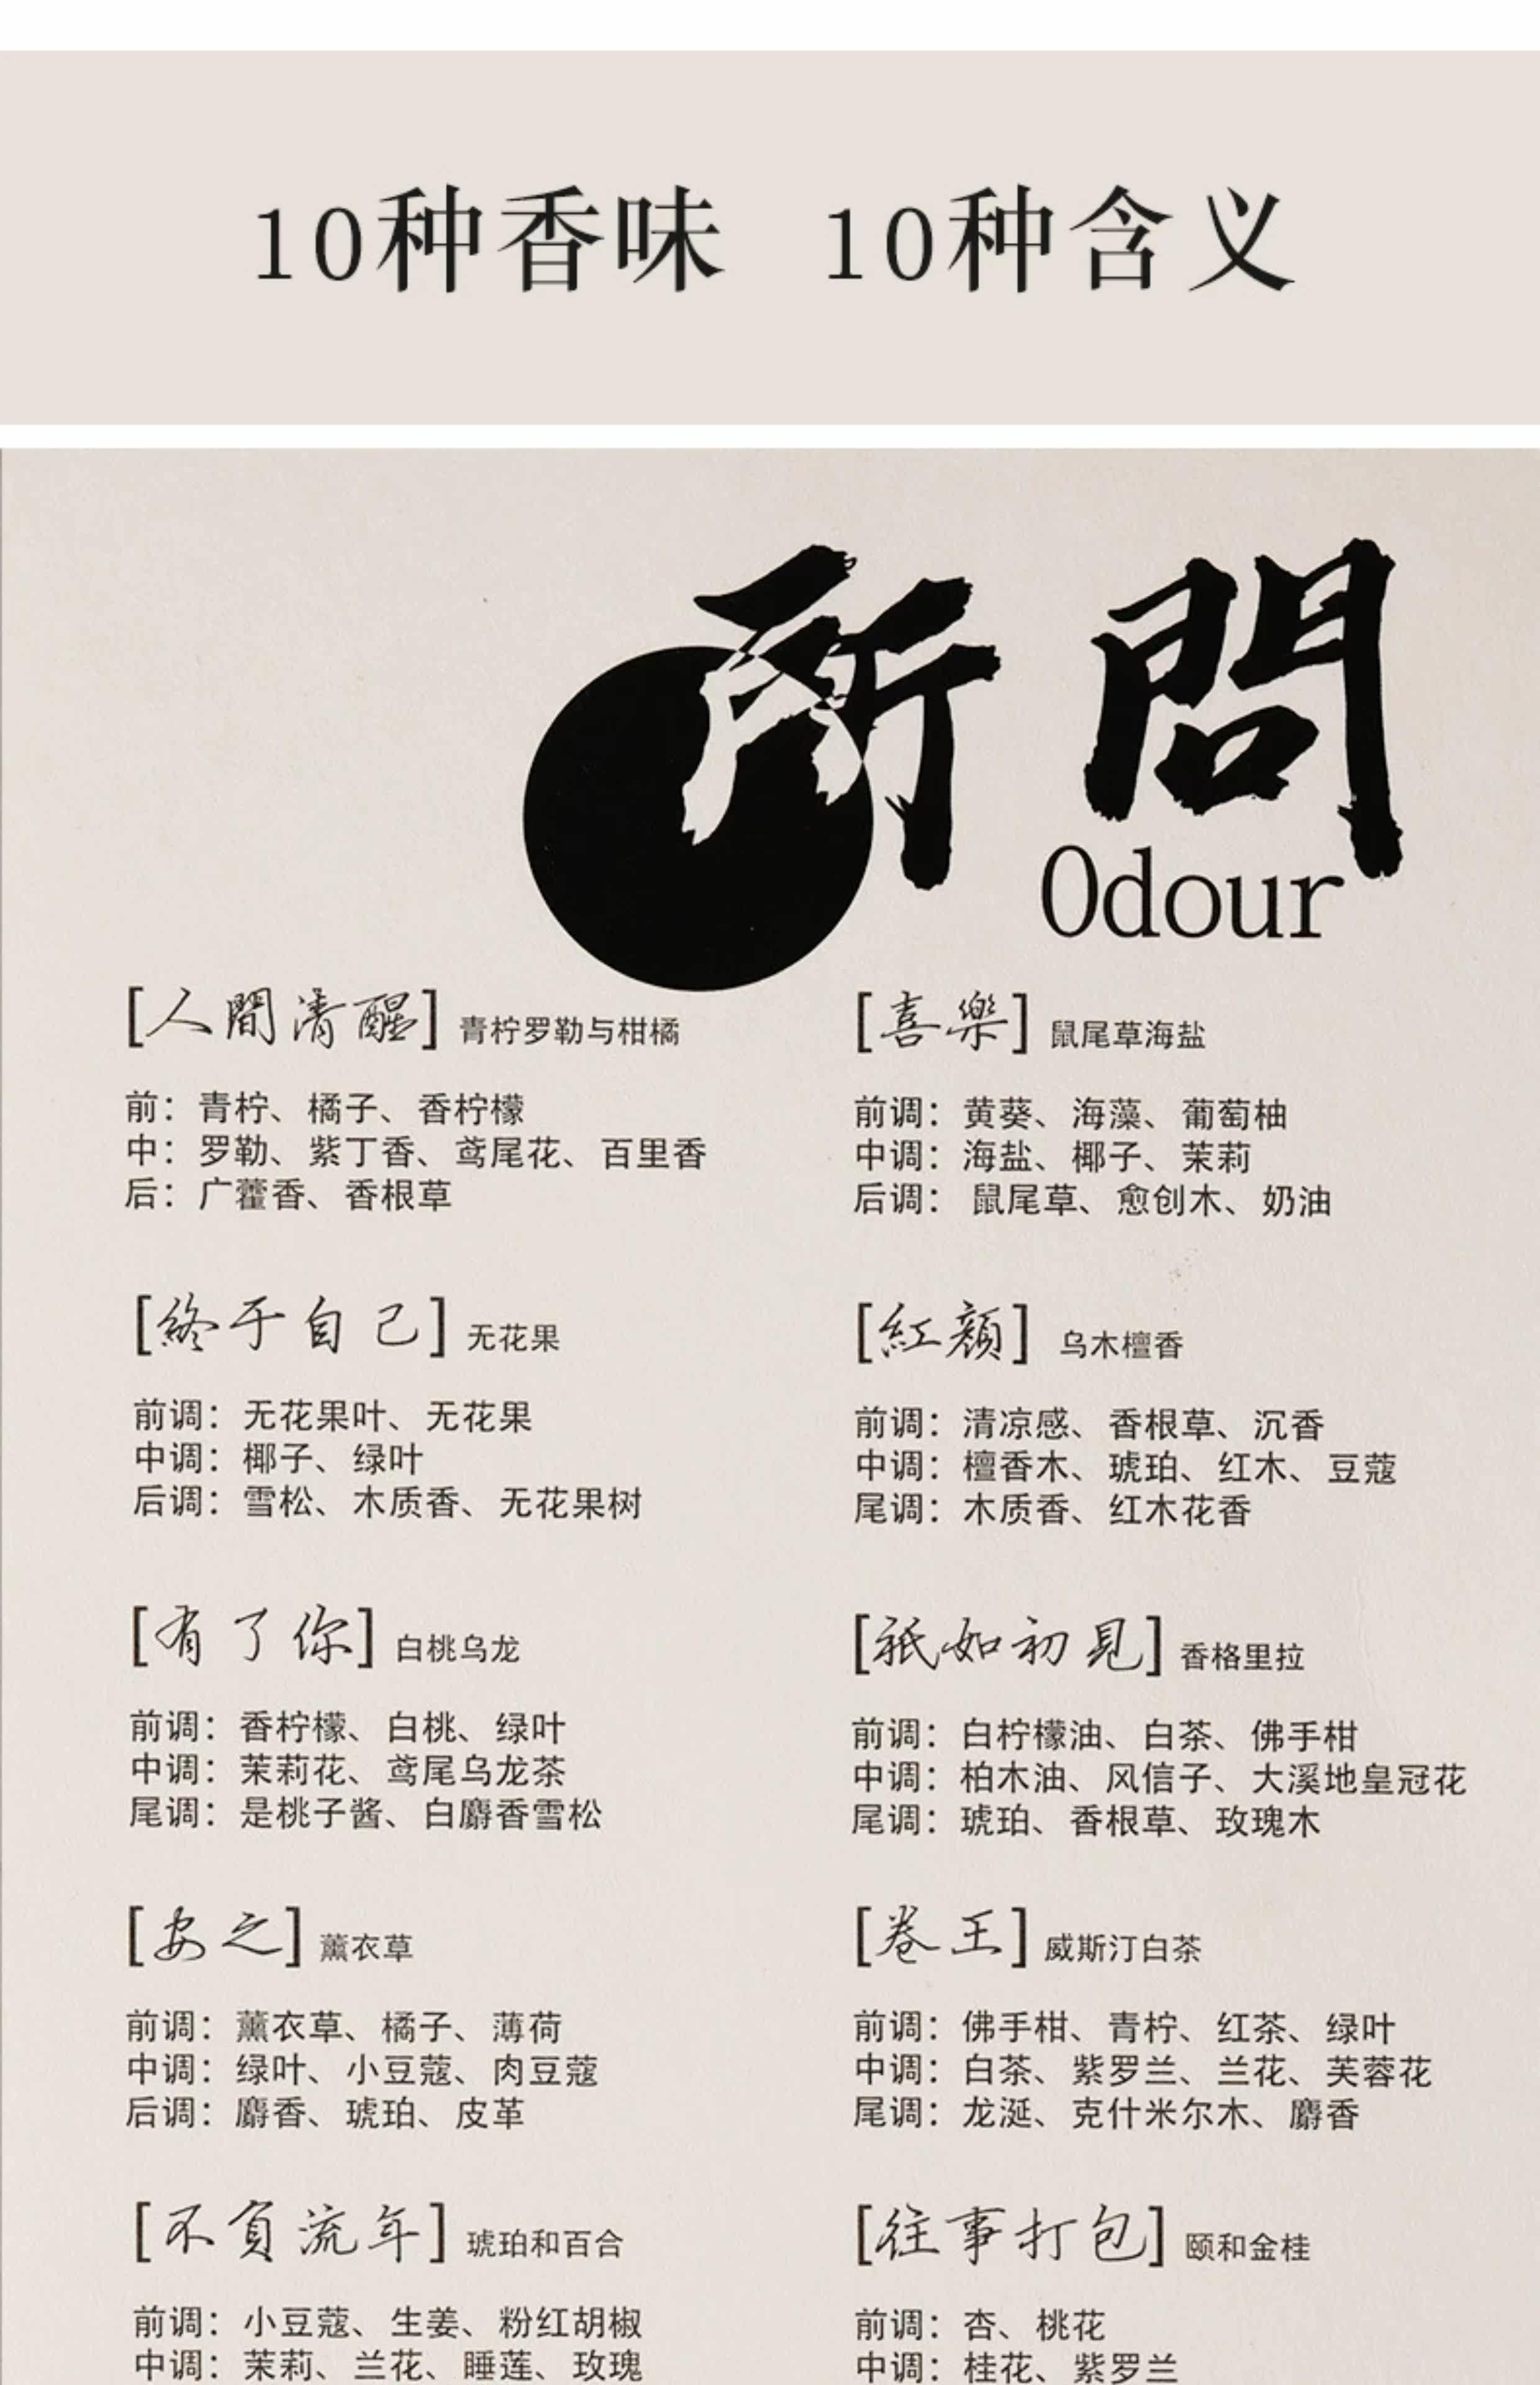 10种香味 10种含义
所問
Odour
[人間清醒] 青柠罗勒与柑橘
前：青柠、橘子、香柠檬
中：罗勒、紫丁香、鸢尾花、百里香
后：广藿香、香根草
[喜樂] 鼠尾草海盐
前调：黄葵、海藻、葡萄柚
中调：海盐、椰子、茉莉
后调：鼠尾草、愈创木、奶油
[終于自己] 无花果
前调：无花果叶、无花果
中调：椰子、绿叶
后调：雪松、木质香、无花果树
[紅顏] 乌木檀香
前调：清凉感、香根草、沉香
中调：檀香木、琥珀、红木、豆蔻
尾调：木质香、红木花香
[有了你] 白桃乌龙
前调：香柠檬、白桃、绿叶
中调：茉莉花、鸢尾乌龙茶
尾调：是桃子酱、白麝香雪松
[祇如初見] 香格里拉
前调：白柠檬油、白茶、佛手柑
中调：柏木油、风信子、大溪地皇冠花
尾调：琥珀、香根草、玫瑰木
[安之] 薰衣草
前调：薰衣草、橘子、薄荷
中调：绿叶、小豆蔻、肉豆蔻
后调：麝香、琥珀、皮革
[卷王] 威斯汀白茶
前调：佛手柑、青柠、红茶、绿叶
中调：白茶、紫罗兰、兰花、芙蓉花
尾调：龙涎、克什米尔木、麝香
[不負流年] 琥珀和百合
前调：小豆蔻、生姜、粉红胡椒
中调：茉莉、兰花、睡莲、玫瑰
[往事打包] 颐和金桂
前调：杏、桃花
中调：桂花、紫罗兰